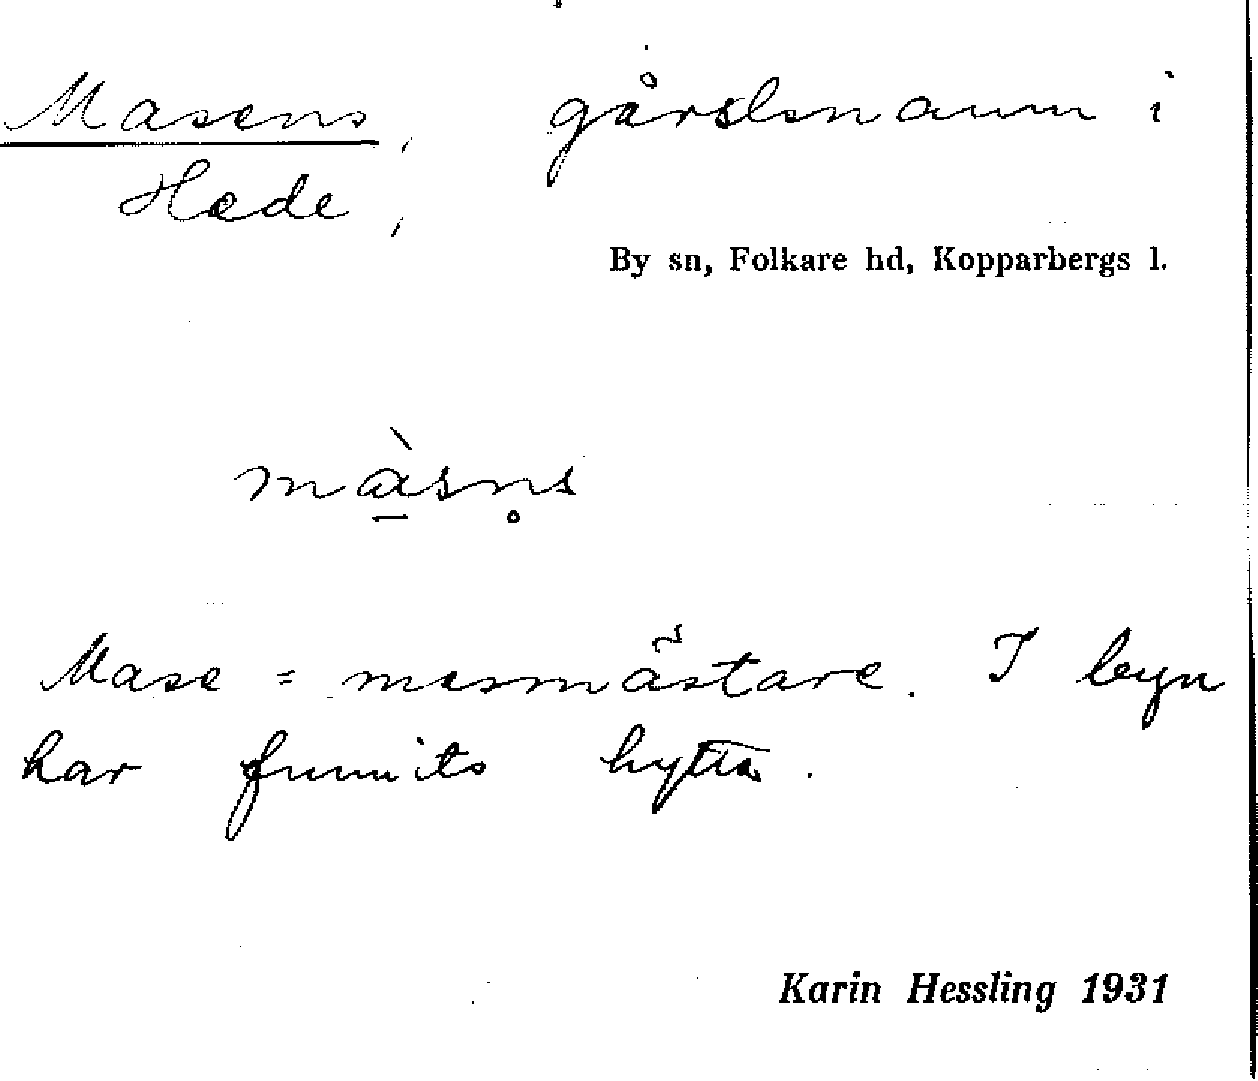 Masens, gårdsnamn i
Hede,
By sn, Folkare hd, Kopparbergs l.
màsn̥s
Mase = masmästare. I byn
har funnits hytta.
Karin Hessling 1931